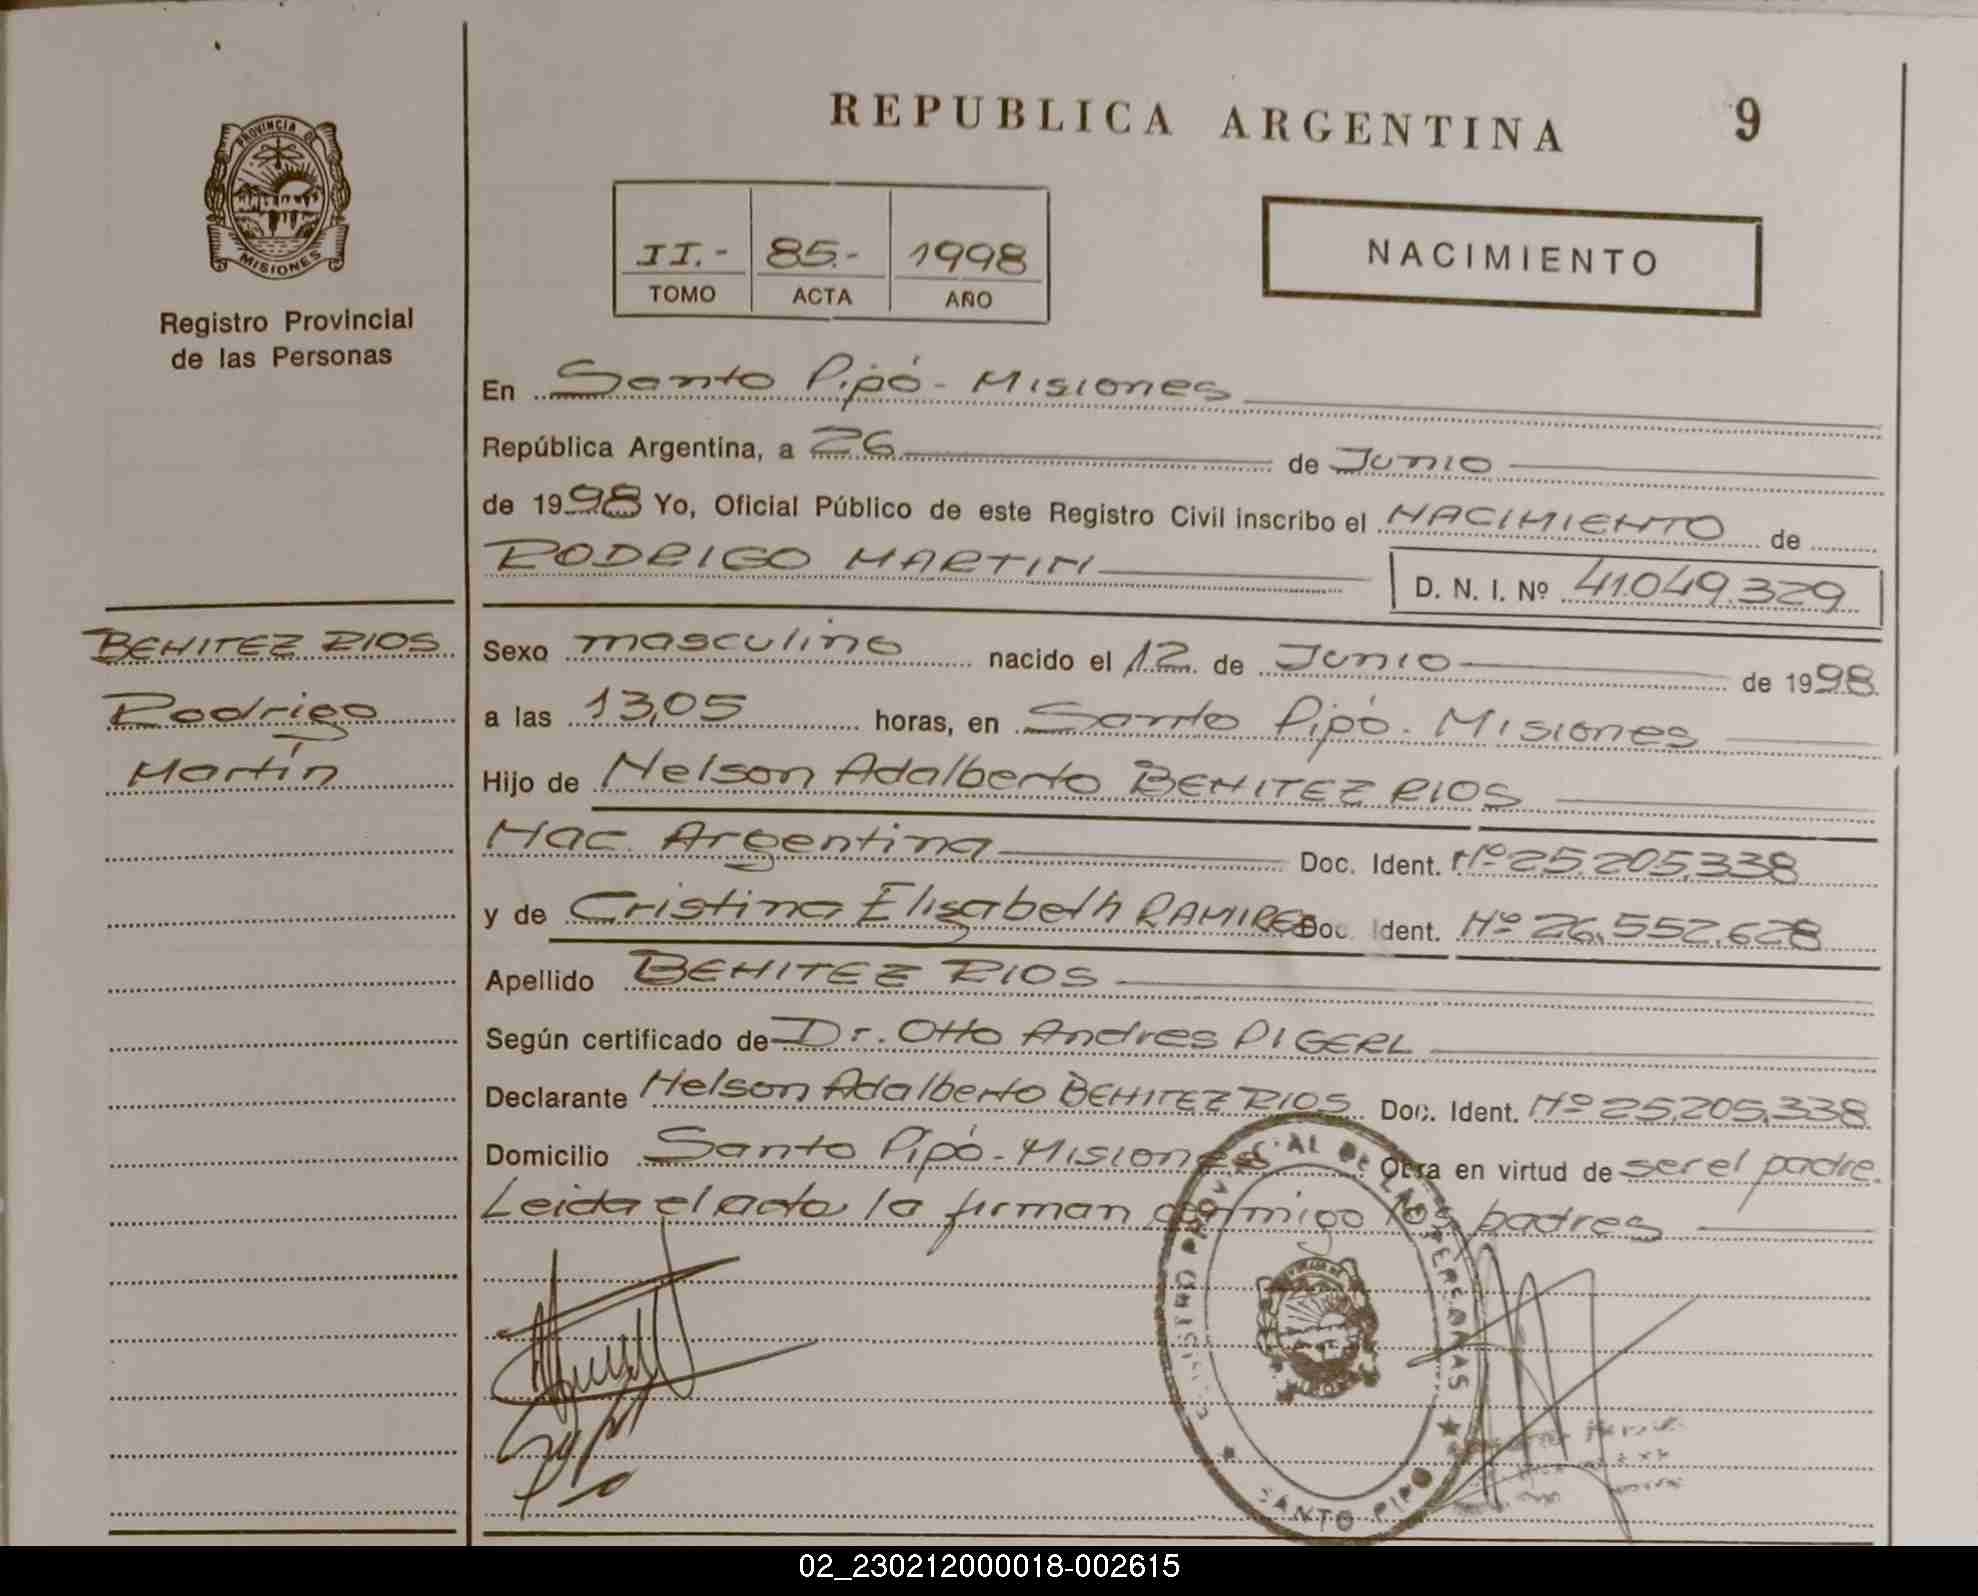 REPUBLICA ARGENTINA
9
PROVINCIA DE
MISIONES
Registro Provincial
de las Personas
II.- 85.- 1998
TOMO ACTA AÑO
NACIMIENTO
En Santo Pipó - Misiones
República Argentina, a 26 de Junio
de 1998 Yo, Oficial Público de este Registro Civil inscribo el NACIMIENTO de
RODRIGO MARTIN
D. N. I. Nº 41.049.329
BENITEZ RIOS
Rodrigo
Martín
Sexo masculino nacido el 12 de Junio de 1998
a las 13,05 horas, en Santo Pipó. Misiones
Hijo de Nelson Adalberto BENITEZ RIOS
Nac. Argentina Doc. Ident. Nº 25.205.338
y de Cristina Elizabeth RAMIREZ Doc. Ident. Nº 26.552.628
Apellido BENITEZ RIOS
Según certificado de Dr. Otto Andres PIGERL
Declarante Nelson Adalberto BENITEZ RIOS Doc. Ident. Nº 25.205.338
Domicilio Santo Pipó - Misiones Obra en virtud de ser el padre.
Leida el acta la firman conmigo los padres
REGISTRO PROVINCIAL DE LAS PERSONAS
SANTO PIPO
02_230212000018-002615